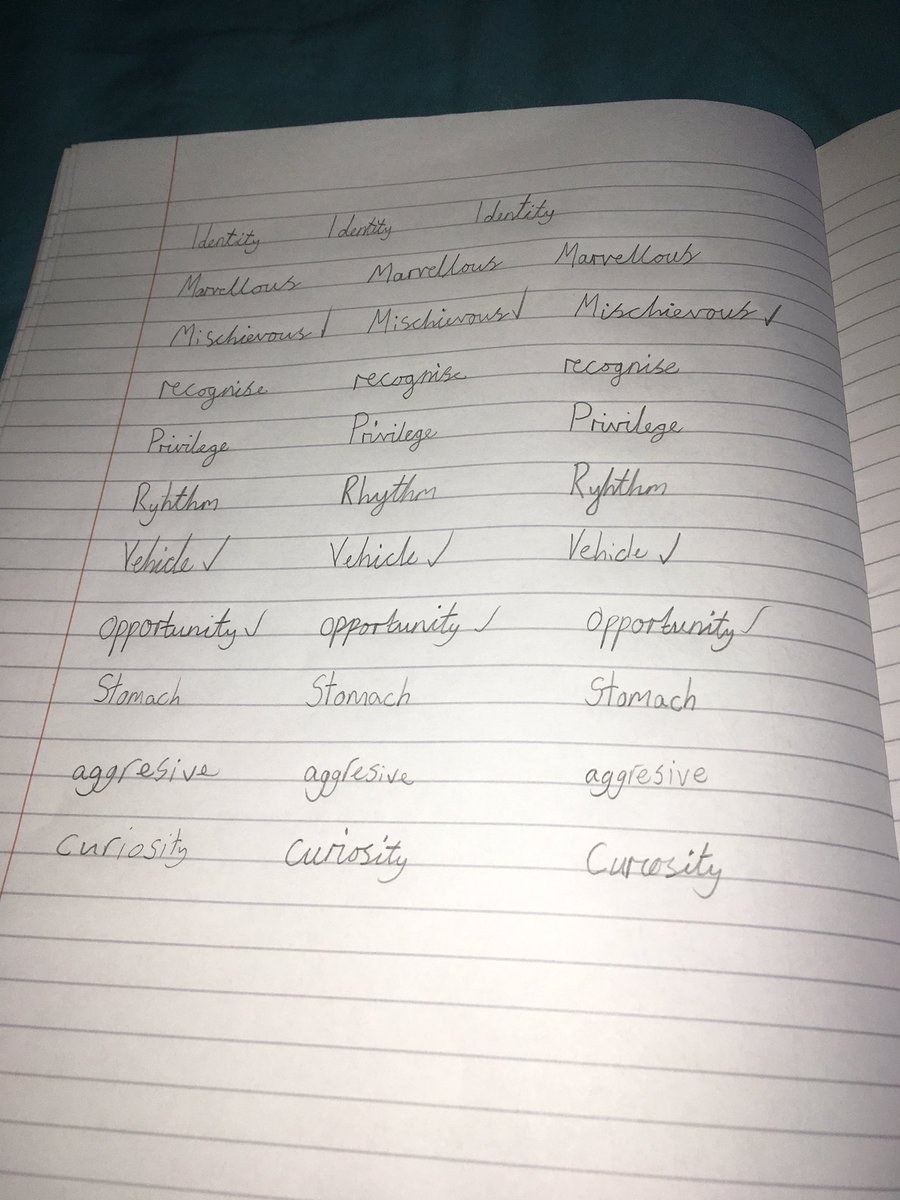 Identity Identity Identity
Marvellous Marvellous Marvellous
Mischievous ✓ Mischievous ✓ Mischievous ✓
recognise recognise recognise
Privilege Privilege Privilege
Ryhthm Rhythm Ryhthm
Vehicle ✓ Vehicle ✓ Vehicle ✓
opportunity ✓ opportunity ✓ Opportunity ✓
Stomach Stomach Stomach
aggresive aggresive aggresive
curiosity curiosity Curcosity